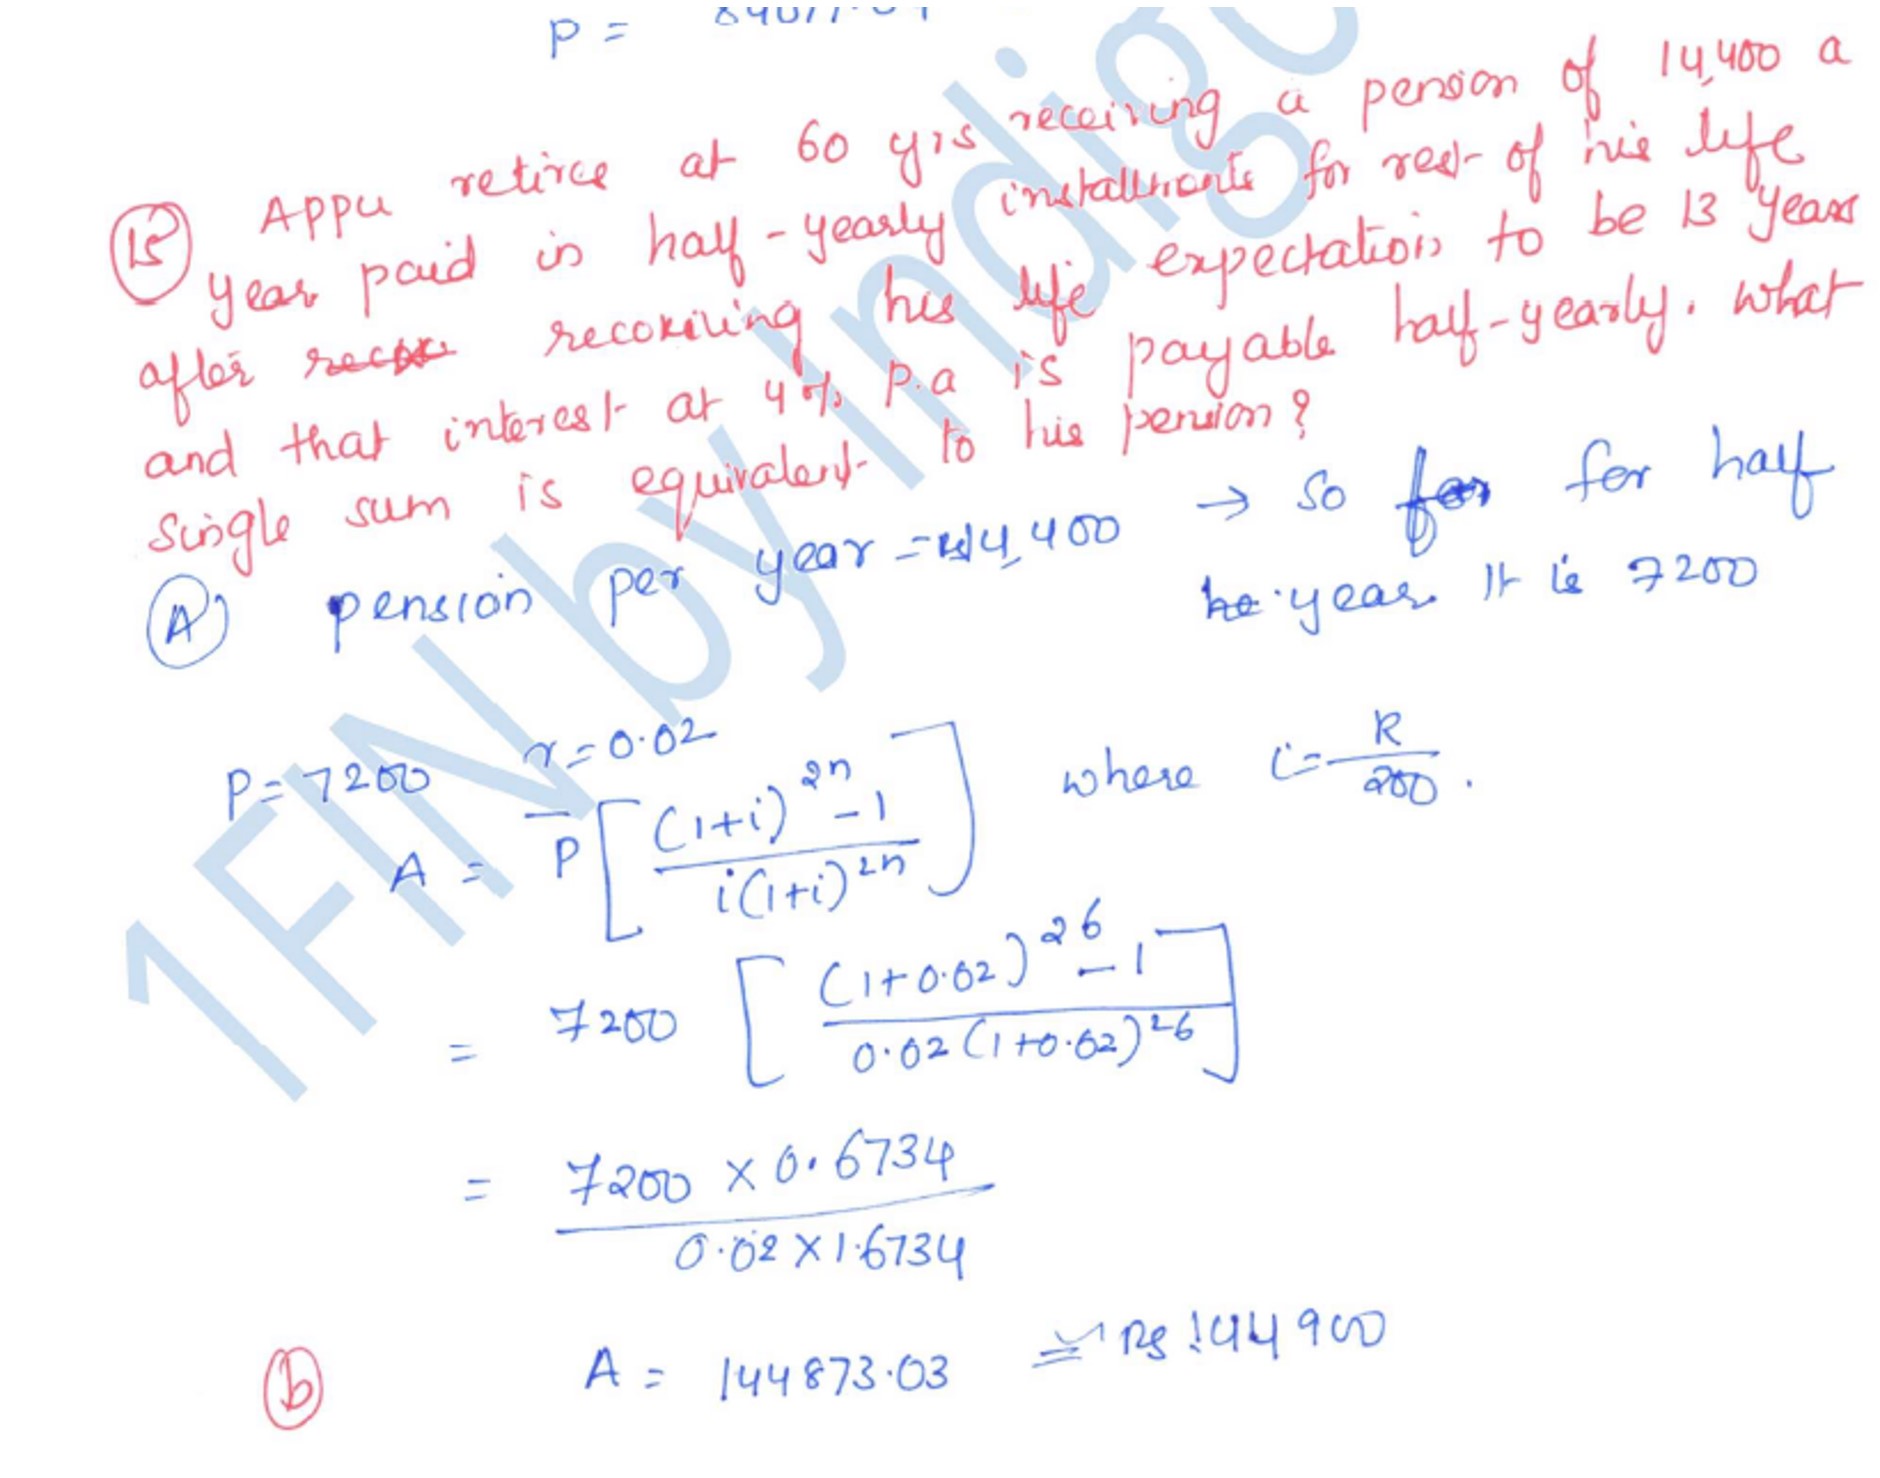 P =
(15) Appu retires at 60 yrs receiving a pension of 14,400 a
year paid in half-yearly installments for rest of his life
after reconiling his life expectation to be 13 years
and that interest at 4% p.a is payable half-yearly. what
single sum is equivalent to his pension?
(A) pension per year = 14,400 → so for for half
year It is 7200
P = 7200 r = 0.02
A = P [ (1+i)^2n - 1 / i(1+i)^2n ] where i = R / 200 .
= 7200 [ (1+0.02)^26 - 1 / 0.02 (1+0.02)^26 ]
= 7200 x 0.6734 / 0.02 x 1.6734
(b) A = 144873.03 ≃ Rs 144900
1FIN by Indigo